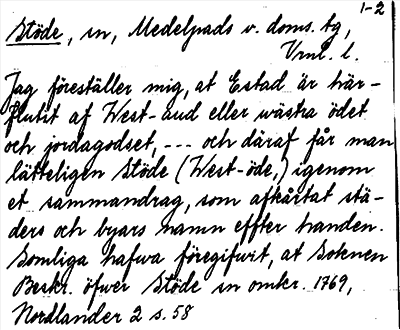 1-2
Stöde, sn, Medelpads v. doms. tg,
Vnrl. l.
Jag föreställer mig, at Estad är här-
flutit af West-aud eller wästra ödet
och jordagodset, --- och däraf får man
lätteligen Stöde (West-öde,) igenom
et sammandrag, som afkårtat stä-
ders och byars namn effter handen.
Somliga hafwa föregifwit, at Soknen
Beskr. öfwer Stöde sn omkr. 1769,
Nordlander 2 s. 58